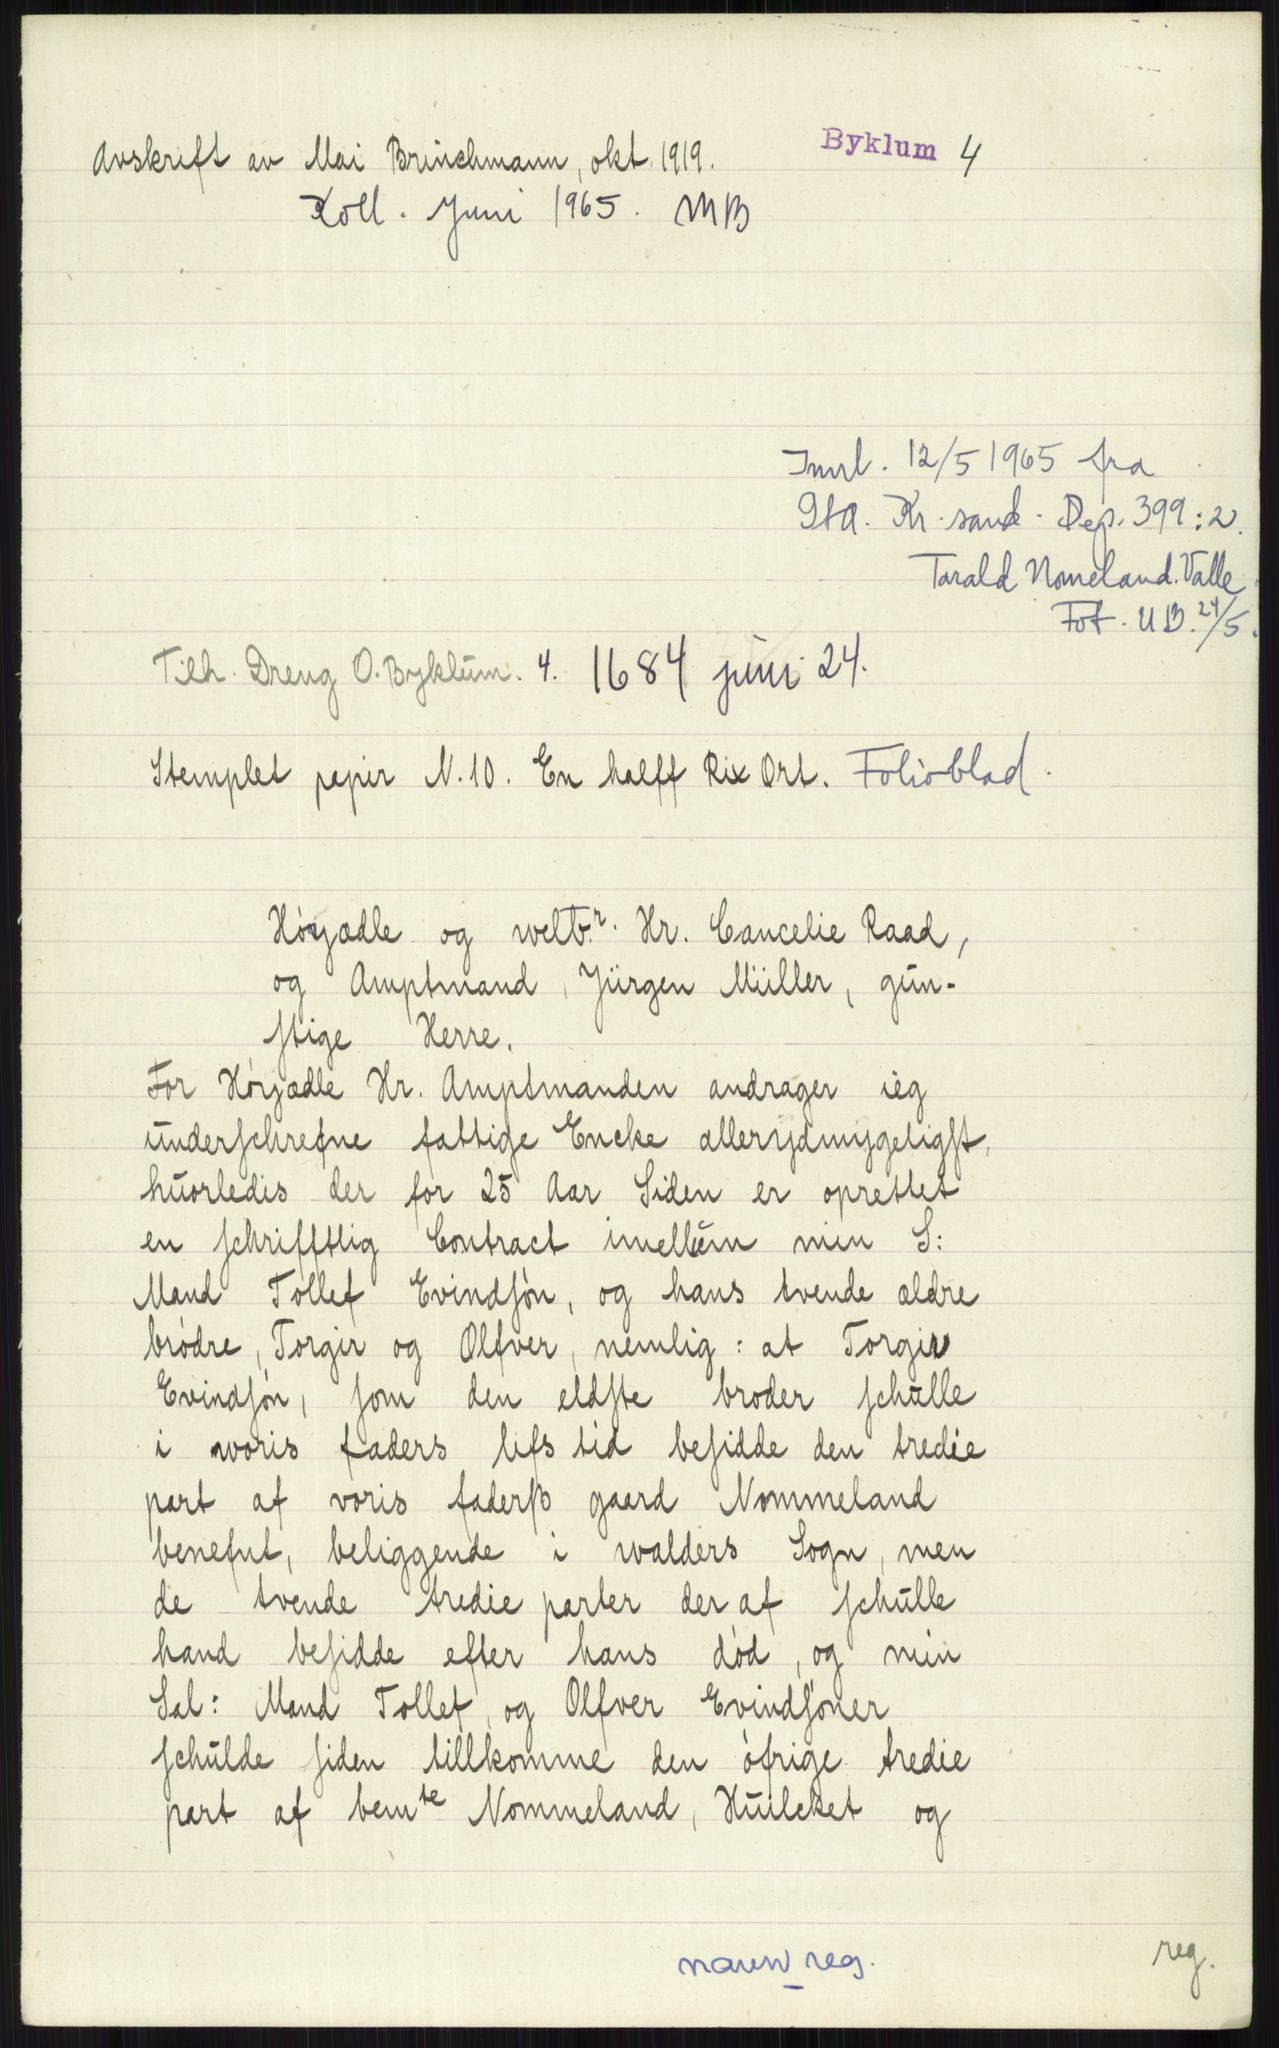 Avskrift av Mai Brinchmann, okt. 1919.
Byklum 4
Koll. Juni 1965. MB
Innl. 12/5 1965 fra
StA. Kr.sand. Dep. 399:2.
Tarald Nomeland. Valle
Fot. UB. 24/5.
Tilh. Dreng O. Byklum. 4. 1684 juni 24.
Stemplet papir N. 10. En halff Rix Ort. Folioblad.
Høyædle og welb.r Hr. Cancelie Raad,
og Amptmand, Jürgen Müller, gun-
stige Herre.
For Høyædle Hr. Amptmanden andrager ieg
underschrefne fattige Encke allerydmygeligst,
huorledis der for 25 Aar Siden er oprettet
en schrifftlig Contract imellum min S:
Mand Tollef Evindsøn, og hans tvende ældre
brødre, Torgir og Olfver, nemlig: at Torgir
Evindsøn, som den eldste broder schulle
i woris faders lifs tid besidde den tredie
part af voris faderss gaard Nommeland
benefnt, beliggende i walders Sogn, men
de tvende tredie parter der af schulle
hand besidde efter hans død, og min
Sal: Mand Tollef, og Olfver Evindsøner
schulde siden tillkomme den øfrige tredie
part af bemte Nommeland, Huilcket og
navnreg.
reg.